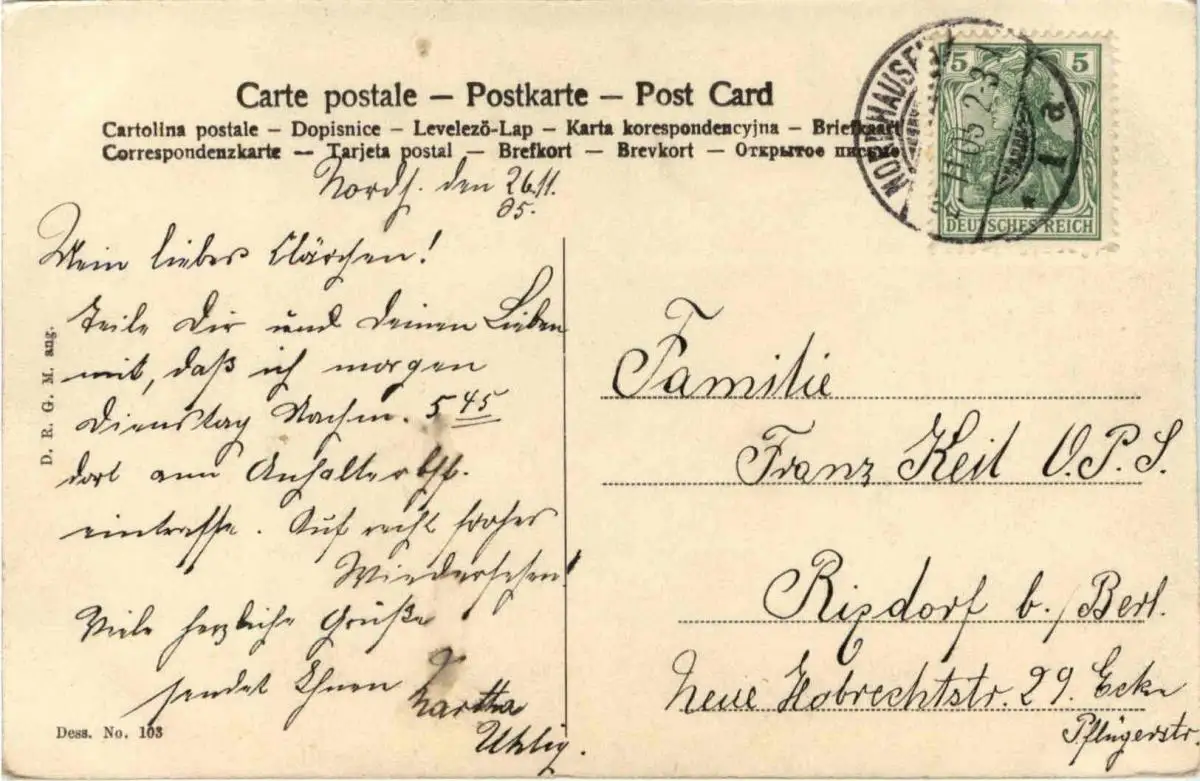 Carte postale – Postkarte – Post Card
Cartolina postale – Dopisnice – Levelezō-Lap – Karta korespondencyjna – Briefkaart
Correspondenzkarte – Tarjeta postal – Brefkort – Brevkort – Открытое письмо
NORDHAUSEN
11.05. 2-3 N
* 1 a
5 5
DEUTSCHES REICH
Nordh. den 26.11.
05.
Mein liebes Clärchen!
Teile Dir und Deinen Lieben
mit, daß ich morgen
Dienstag Nachm. 5 45
dort am Anhalter Bhf.
eintreffe. Auf recht frohes
Wiedersehen!
Viele herzliche Grüße
sendet Ihnen
Martha
Uhlig.
D. R. G. M. ang.
Dess. No. 103
Familie
Franz Keil O.P.S.
Rixdorf b./Berl.
Neue Hobrechtstr. 29. Ecke
Pflügerstr.